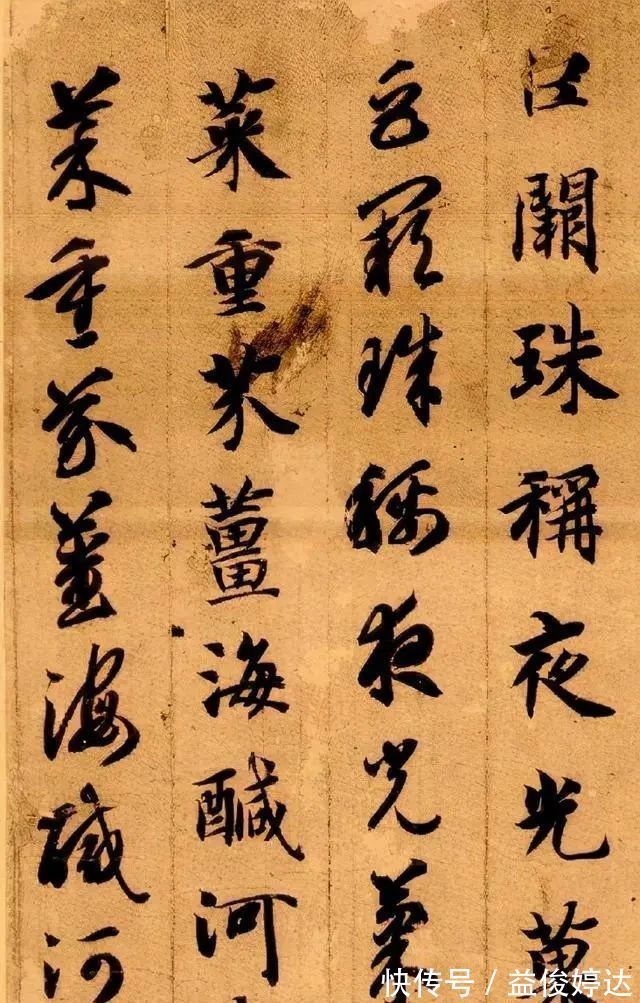 巨闕珠稱夜光菓
巨闕珠稱夜光菓
菜重芥薑海醎河
菜重芥薑海鹹河
快传号 / 益俊婷达